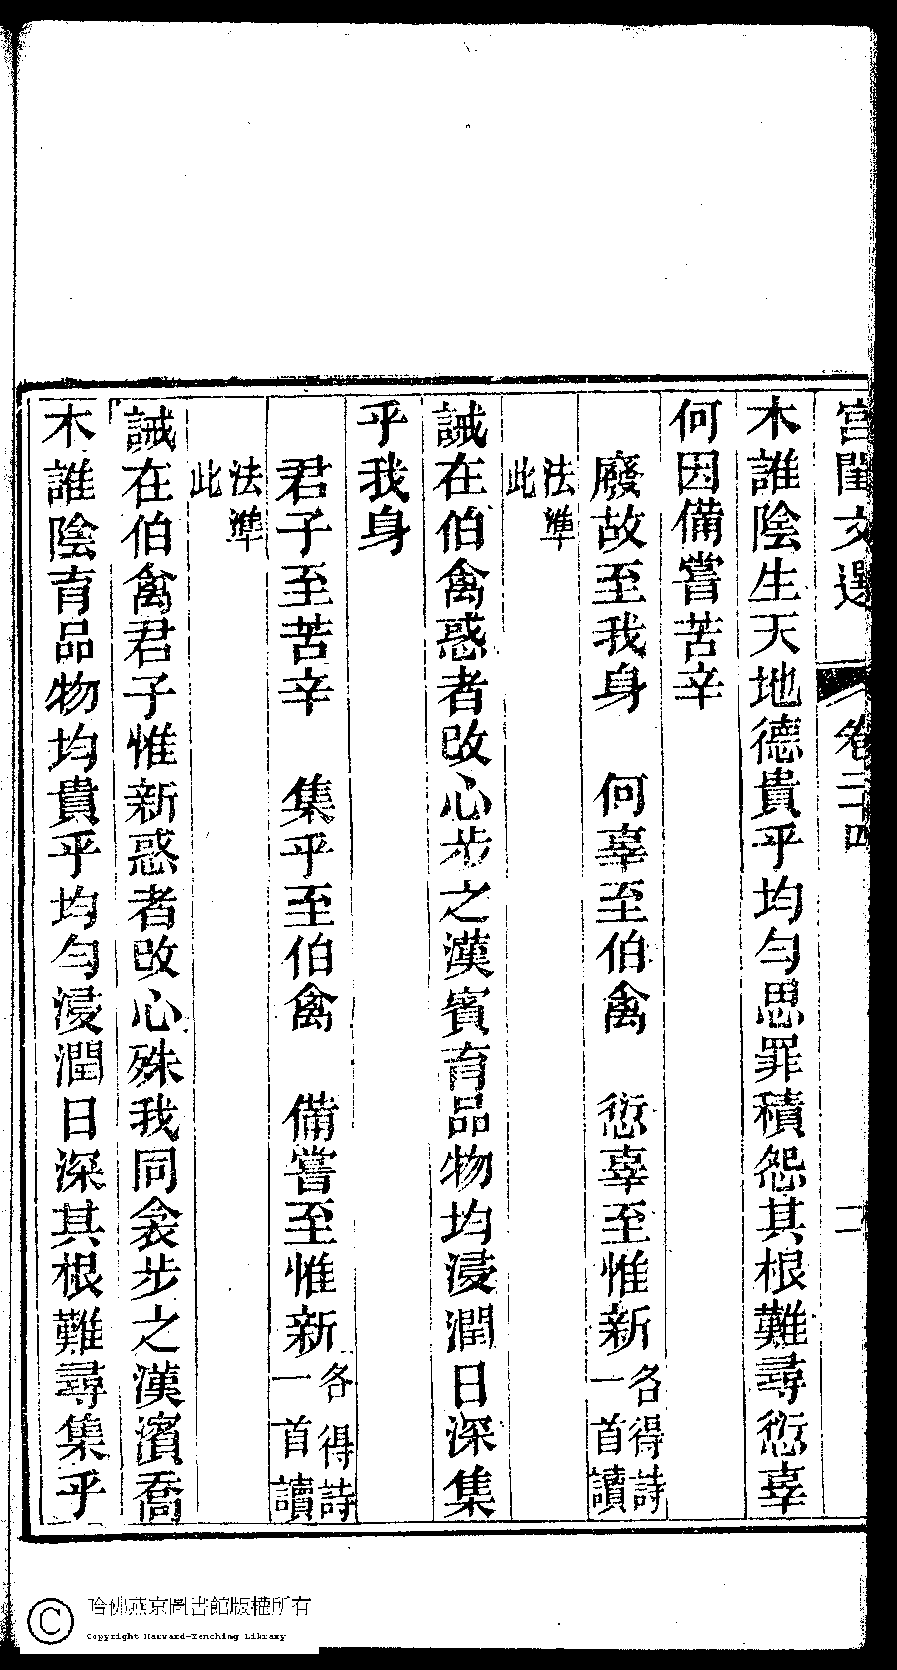 宮閨文選 卷二十四 二
木誰陰生天地德貴乎均勻思罪積怨其根難尋愆辜
何因備嘗苦辛
廢故至我身 何辜至伯禽 愆辜至惟新各得詩一首讀
法準此
誡在伯禽惑者改心步之漢賓育品物均浸潤日深集
乎我身
君子至苦辛 集乎至伯禽 備嘗至惟新各得詩一首讀
法準此
誡在伯禽君子惟新惑者改心殊我同衾步之漢濱喬
木誰陰育品物均貴乎均勻浸潤日深其根難尋集乎
哈佛燕京圖書館版權所有
Copyright Harvard-Yenching Library